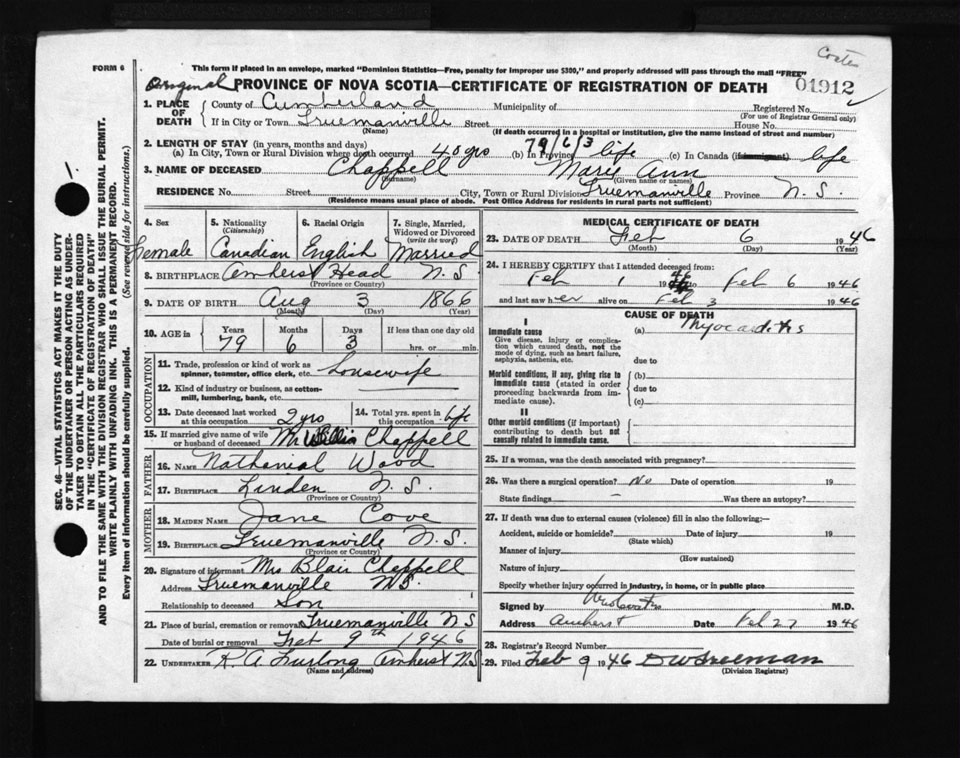 Coates
FORM 6
This form if placed in an envelope, marked "Dominion Statistics—Free, penalty for improper use $300," and properly addressed will pass through the mail "FREE"
Original PROVINCE OF NOVA SCOTIA—CERTIFICATE OF REGISTRATION OF DEATH 01912
1. PLACE OF DEATH County of Cumberland Municipality of Registered No.
(For use of Registrar General only)
If in City or Town Truemanville Street House No.
(Name) (If death occurred in a hospital or institution, give the name instead of street and number)
2. LENGTH OF STAY (in years, months and days) 79/6/3
(a) In City, Town or Rural Division where death occurred 40 yrs (b) In Province life (c) In Canada (if immigrant) life
3. NAME OF DECEASED Chappell Mary Ann
(Surname) (Given name or names)
RESIDENCE No. Street City, Town or Rural Division Truemanville Province N.S.
(Residence means usual place of abode. Post Office Address for residents in rural parts not sufficient)
4. Sex Female
5. Nationality (Citizenship) Canadian
6. Racial Origin English
7. Single, Married, Widowed or Divorced (write the word) Married
8. BIRTHPLACE Amherst Head N S
(Province or Country)
9. DATE OF BIRTH Aug 3 1866
(Month) (Day) (Year)
10. AGE in Years Months Days If less than one day old
79 6 3 hrs. or min.
OCCUPATION
11. Trade, profession or kind of work as spinner, teamster, office clerk, etc. Housewife
12. Kind of industry or business, as cotton-mill, lumbering, bank, etc.
13. Date deceased last worked at this occupation 2 yrs
14. Total yrs. spent in this occupation life
15. If married give name of wife or husband of deceased Mr Willis Chappell
FATHER
16. NAME Nathanial Wood
17. BIRTHPLACE Linden N.S.
(Province or Country)
MOTHER
18. MAIDEN NAME Jane Cove
19. BIRTHPLACE Truemanville N.S.
(Province or Country)
20. Signature of informant Mrs Blair Chappell
Address Truemanville N.S.
Relationship to deceased Son
21. Place of burial, cremation or removal Truemanville N S
Date of burial or removal Feb 9th 1946
22. UNDERTAKER K. A. Furlong Amherst N.S
(Name and address)
MEDICAL CERTIFICATE OF DEATH
23. DATE OF DEATH Feb 6 1946
(Month) (Day) (Year)
24. I HEREBY CERTIFY that I attended deceased from:
Feb 1 1946 to Feb 6 1946
and last saw her alive on Feb 3 1946
CAUSE OF DEATH
I
Immediate cause (a) Myocarditis
Give disease, injury or complication which caused death, not the mode of dying, such as heart failure, asphyxia, asthenia, etc.
due to
Morbid conditions, if any, giving rise to immediate cause (stated in order proceeding backwards from immediate cause).
(b)
due to
(c)
II
Other morbid conditions (if important) contributing to death but not causally related to immediate cause.
25. If a woman, was the death associated with pregnancy?
26. Was there a surgical operation? No Date of operation 19
State findings — Was there an autopsy?
27. If death was due to external causes (violence) fill in also the following:—
Accident, suicide or homicide? Date of injury 19
(State which)
Manner of injury
(How sustained)
Nature of injury
Specify whether injury occurred in industry, in home, or in public place
Signed by M.D.
Address Amherst Date Feb 27 1946
28. Registrar's Record Number
29. Filed Feb 9 1946 D W Freeman
(Division Registrar)
SEC. 46—VITAL STATISTICS ACT MAKES IT THE DUTY
OF THE UNDERTAKER OR PERSON ACTING AS UNDER-
TAKER TO OBTAIN ALL THE PARTICULARS REQUIRED
IN THE "CERTIFICATE OF REGISTRATION OF DEATH"
AND TO FILE THE SAME WITH THE DIVISION REGISTRAR WHO SHALL ISSUE THE BURIAL PERMIT.
WRITE PLAINLY WITH UNFADING INK. THIS IS A PERMANENT RECORD.
Every item of information should be carefully supplied. (See reverse side for instructions.)